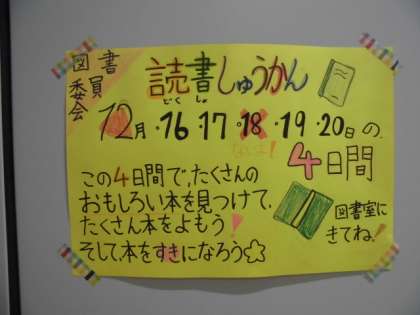 図書
委員
会
読書しゅうかん
どく しょ
12月・16・17・18・19・20日の、
ないよ!
4日間
この4日間で、たくさんの
おもしろい本を見つけて、
たくさん本をよもう!
そして、本をすきになろう☆
図書室に
きてね!